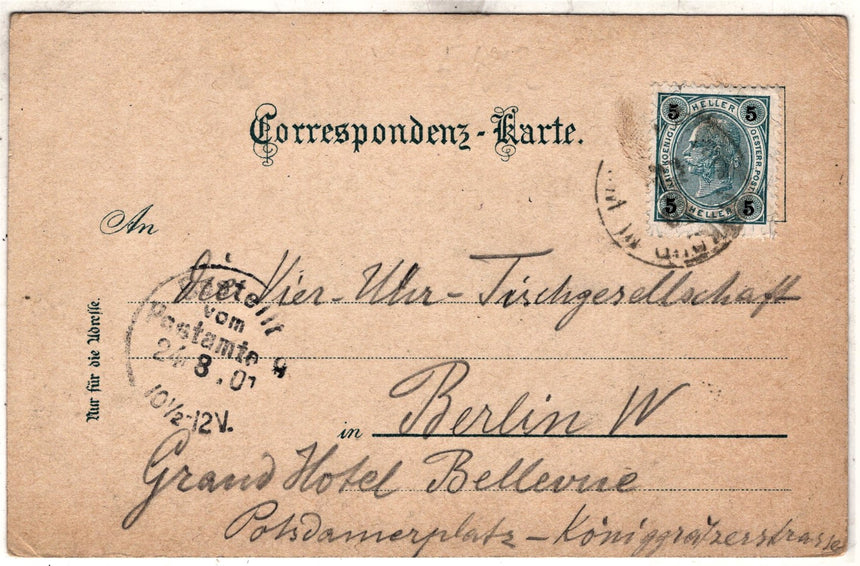 Correspondenz-Karte.
5 HELLER 5
KAIS. KOENIGL.
OESTERR. POST
5 HELLER 5
An
Nur für die Adresse.
die Vier-Uhr-Tischgesellschaft
Bestellt
vom
Postamte 9
24 8.01
10½-12V.
in Berlin W
Grand Hotel Bellevue
Potsdamerplatz - Königgrätzerstrasse